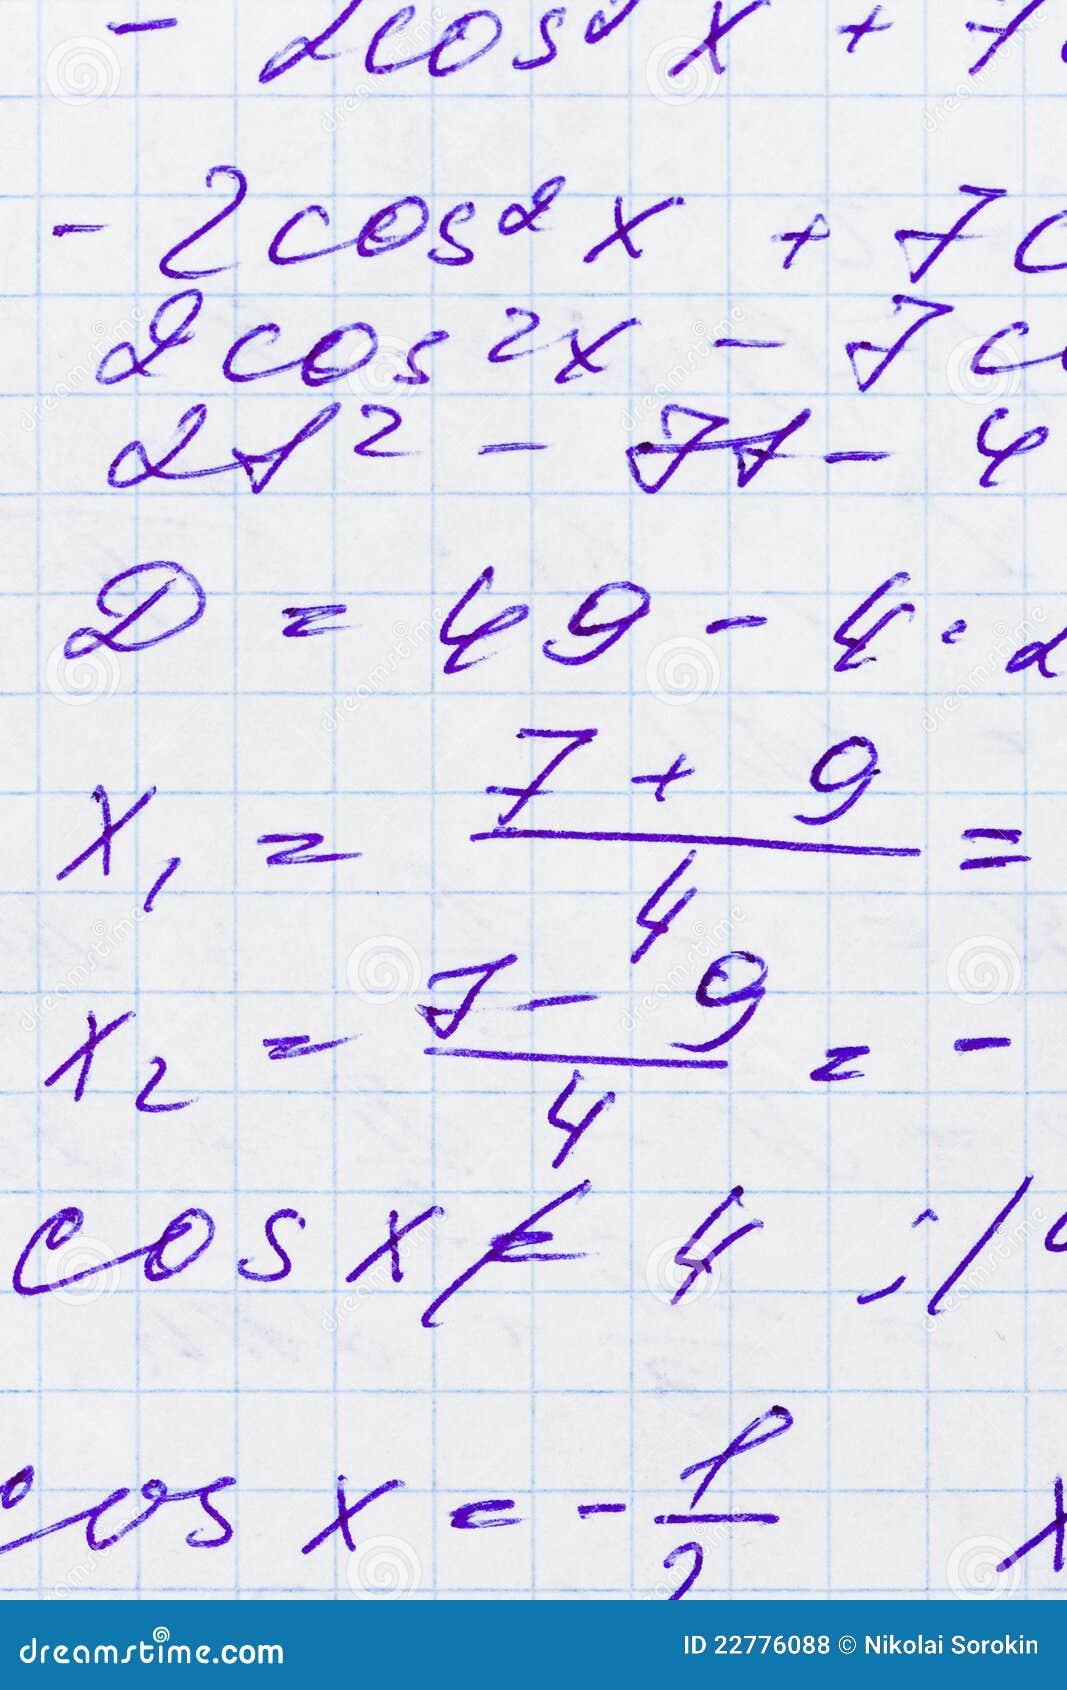 - 2cos² x + 7
- 2cos² x + 7c
2cos²x - 7c
2t² - 7t - 4
D = 49 - 4 · 2
x₁ = (7 + 9)/4 =
x₂ = (7 - 9)/4 = -
cos x ≠ 4 ; /
cos x = - 1/2 x
dreamstime.com ID 22776088 © Nikolai Sorokin